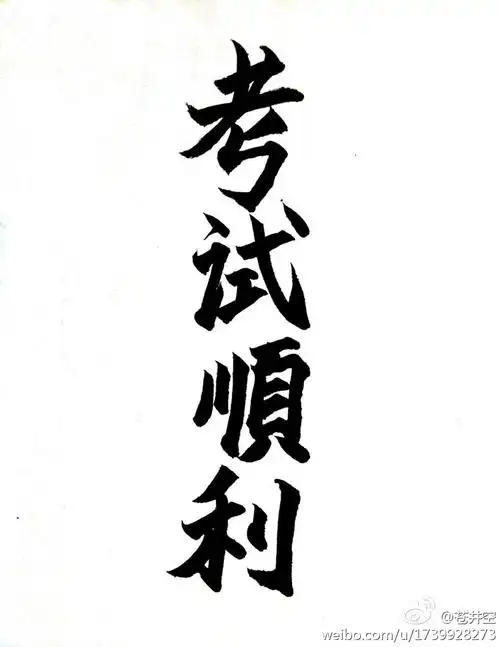 考试順利
@苍井空
weibo.com/u/1739928273